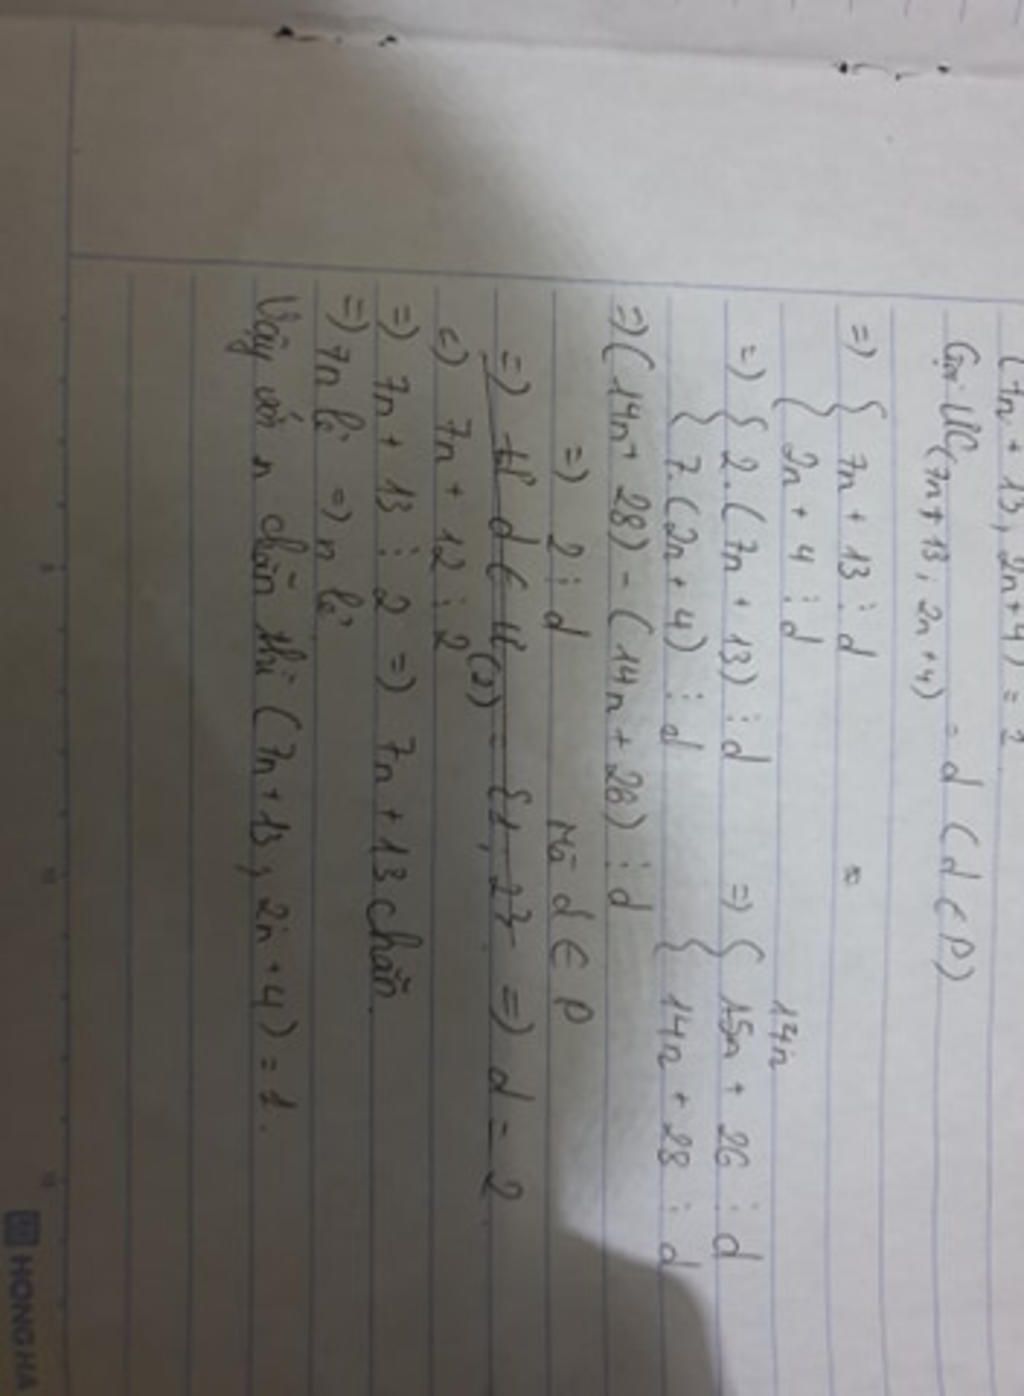 (7n + 13, 2n + 4) = 1
Gọi ƯC(7n + 13; 2n + 4) = d (d ∈ P)
=> { 7n + 13 ⋮ d
{ 2n + 4 ⋮ d
14n
=> { 2.(7n + 13) ⋮ d => { 15n + 26 ⋮ d
{ 7.(2n + 4) ⋮ d { 14n + 28 ⋮ d
=> (14n + 28) - (14n + 26) ⋮ d
=> 2 ⋮ d Mà d ∈ P
=> Ư d ∈ Ư(2) = {1, 2} => d = 2
c) 7n + 12 ⋮ 2
=> 7n + 13 ⋮ 2 => 7n + 13 chẵn.
=> 7n lẻ => n lẻ
Vậy với n chẵn thì (7n + 13, 2n + 4) = 1.
HONG HA